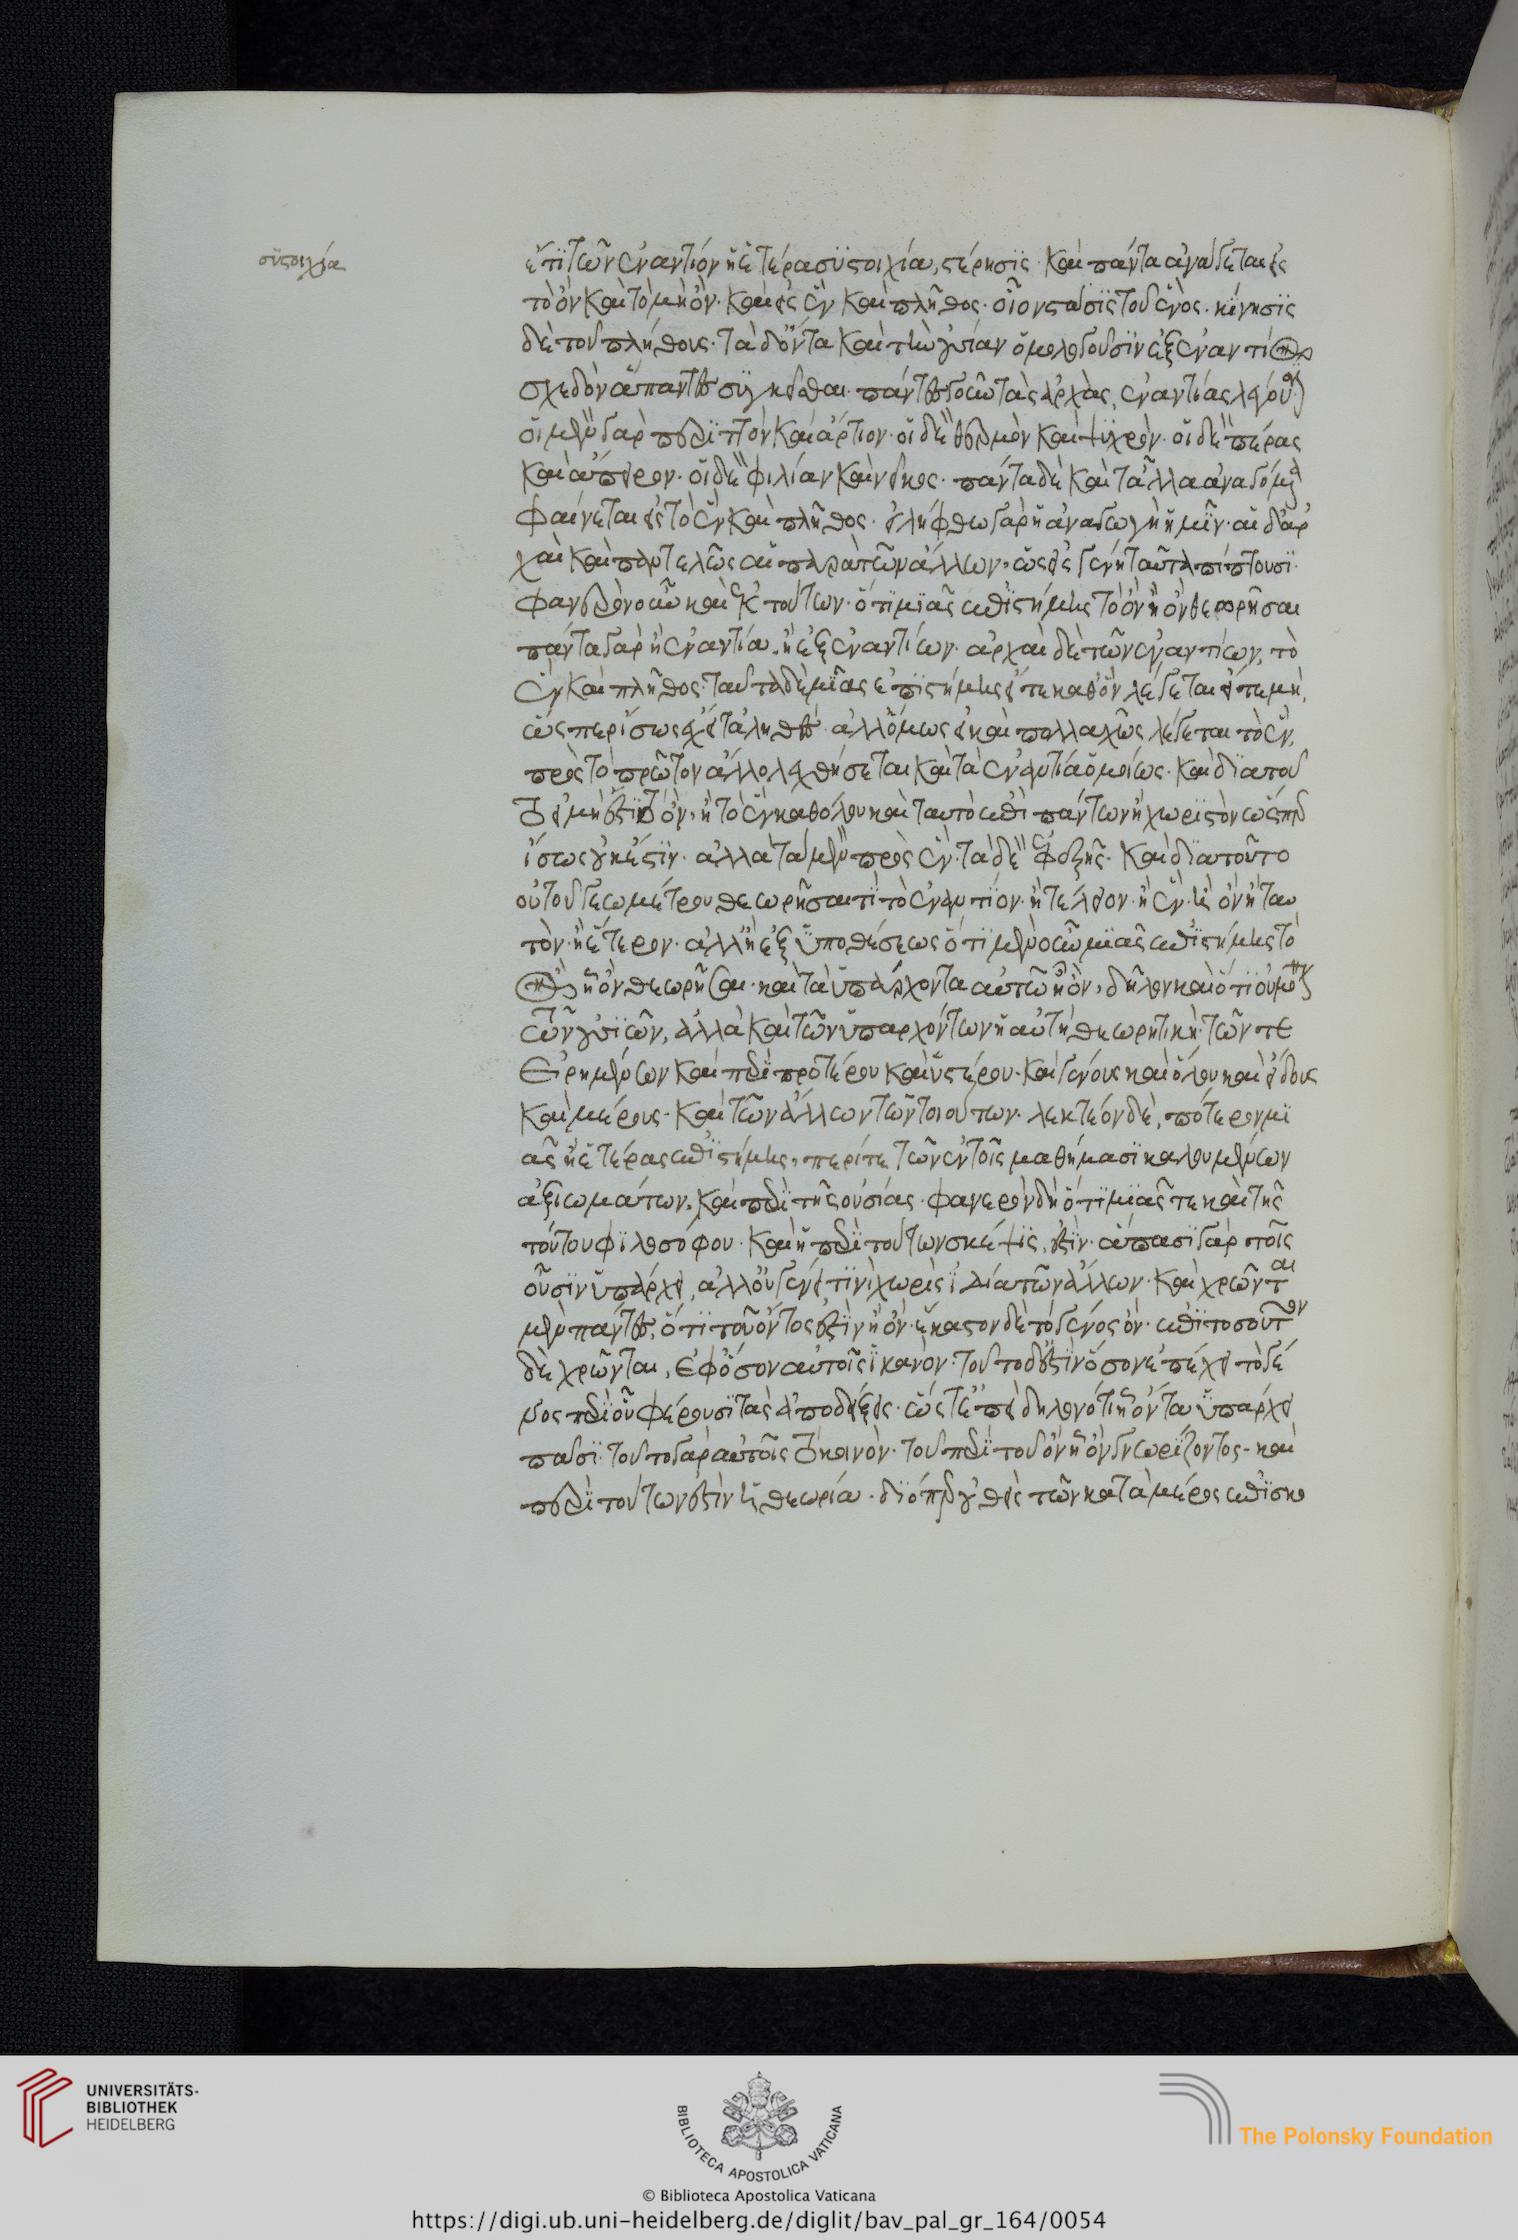 συστοιχία
ἔτι τῶν ἐναντίων ἡ ἑτέρα συστοιχία, στέρησις· καὶ πάντα ἀνάγεται εἰς
τὸ ὂν καὶ τὸ μὴ ὄν· καὶ εἰς ἓν καὶ πλῆθος· οἷον στάσις τοῦ ἑνὸς· κίνησις
δὲ τοῦ πλήθους· τὰ δ' ὄντα καὶ τὴν οὐσίαν ὁμολογοῦσιν ἐξ ἐναντίων
σχεδὸν ἅπαντες συγκεῖσθαι· πάντες γοῦν τὰς ἀρχὰς, ἐναντίας λέγουσιν
οἱ μὲν γὰρ περιττὸν καὶ ἄρτιον· οἱ δὲ θερμὸν καὶ ψυχρὸν· οἱ δὲ πέρας
καὶ ἄπειρον· οἱ δὲ φιλίαν καὶ νεῖκος· πάντα δὲ καὶ τἆλλα ἀναγόμενα
φαίνεται εἰς τὸ ἓν καὶ πλῆθος· εἰλήφθω γὰρ ἡ ἀναγωγὴ ἡμῖν· αἱ δ' ἀρ
χαὶ καὶ παντελῶς αἱ παρὰ τῶν ἄλλων, ὡς εἰς γένη ταῦτα πίπτουσι·
φανερὸν οὖν καὶ ἐκ τούτων· ὅτι μιᾶς ἐπιστήμης τὸ ὂν ᾗ ὂν θεωρῆσαι
πάντα γὰρ ἢ ἐναντία, ἢ ἐξ ἐναντίων· ἀρχαὶ δὲ τῶν ἐναντίων, τὸ
ἓν καὶ πλῆθος· ταῦτα δὲ μιᾶς ἐπιστήμης εἴτε καθ' ἓν λέγεται εἴτε μὴ,
ὥσπερ ἴσως ἔχει τἀληθὲς· ἀλλ' ὅμως εἰ καὶ πολλαχῶς λέγεται τὸ ἓν,
πρὸς τὸ πρῶτον ἄλλο λεχθήσεται καὶ τὰ ἐναντία ὁμοίως· καὶ διὰ τοῦ
το εἰ μή ἐστι τὸ ὂν, ἢ τὸ ἓν καθόλου καὶ ταυτὸ ἐπὶ πάντων ἢ χωριστὸν ὥσπερ
ἴσως οὐκ ἔστιν· ἀλλὰ τὰ μὲν πρὸς ἓν· τὰ δὲ ἐφεξῆς· καὶ διὰ τοῦτο
οὐ τοῦ γεωμέτρου θεωρῆσαι τί τὸ ἐναντίον· ἢ τέλειον· ἢ ἓν· ἢ ὂν ἢ ταυ
τὸν· ἢ ἕτερον· ἀλλ' ἢ ἐξ ὑποθέσεως ὅτι μὲν οὖν μιᾶς ἐπιστήμης τὸ
ὂν ᾗ ὂν θεωρῆσαι· καὶ τὰ ὑπάρχοντα αὐτῷ ᾗ ὂν, δῆλον καὶ ὅτι οὐ μόνον
τῶν οὐσιῶν, ἀλλὰ καὶ τῶν ὑπαρχόντων ἡ αὐτὴ θεωρητικὴ· τῶν τε
εἰρημένων καὶ περὶ προτέρου καὶ ὑστέρου· καὶ γένους καὶ ὅλου καὶ εἴδους
καὶ μέρους· καὶ τῶν ἄλλων τῶν τοιούτων· λεκτέον δὲ, πότερον μι
ᾶς ἢ ἑτέρας ἐπιστήμης, περί τε τῶν ἐν τοῖς μαθήμασι καλουμένων
ἀξιωμάτων, καὶ περὶ τῆς οὐσίας· φανερὸν δὴ ὅτι μιᾶς τε καὶ τῆς
τούτου φιλοσόφου· καὶ ἡ περὶ τούτων σκέψις, ἐστίν· ἅπασι γὰρ τοῖς
οὖσιν ὑπάρχει, ἀλλ' οὐ γένει τινὶ χωρὶς ἰδία τῶν ἄλλων· καὶ χρῶνται
μὲν πάντες, ὅτι τοῦ ὄντος ἐστὶν ᾗ ὂν· ἕκαστον δὲ τὸ γένος ὂν· ἐπὶ τοσοῦτον
δὲ χρῶνται, ἐφ' ὅσον αὐτοῖς ἱκανὸν· τοῦτο δ' ἐστὶν ὅσον ἐπέχει τὸ γέ
νος περὶ οὗ φέρουσι τὰς ἀποδείξεις· ὥστ' ἐπεὶ δῆλον ὅτι ᾗ ὄντα ὑπάρχει
πᾶσι· τοῦτο γὰρ αὐτοῖς τὸ κοινὸν· τοῦ περὶ τοῦ ὂν ᾗ ὂν γνωρίζοντος· καὶ
περὶ τούτων ἐστὶν ἡ θεωρία· διόπερ οὐθεὶς τῶν κατὰ μέρος ἐπισκο
UNIVERSITÄTS-
BIBLIOTHEK
HEIDELBERG
BIBLIOTECA APOSTOLICA VATICANA
The Polonsky Foundation
© Biblioteca Apostolica Vaticana
https://digi.ub.uni-heidelberg.de/diglit/bav_pal_gr_164/0054